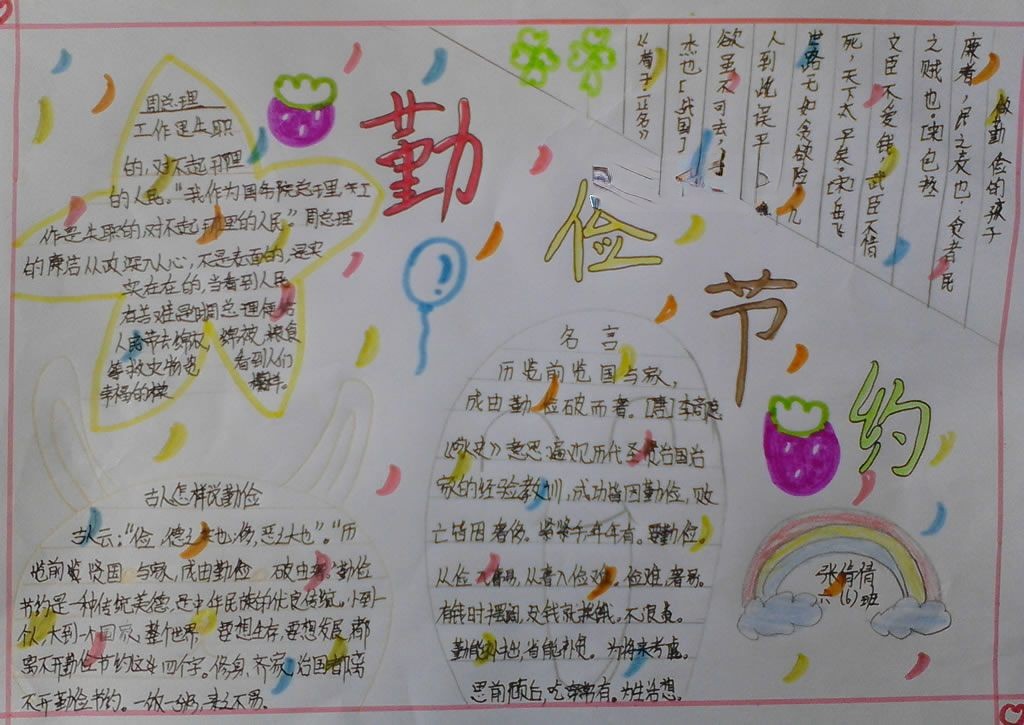 勤
俭
节
约
周总理
工作是失职
的,对不起那里
的人民。"我作为国务院总理,
作是失职的,对不起那里的人民"周总理
的廉洁从政深入人心,不是表面的,是实
实在在的,当看到人民
有苦难是时周总理便给
人民带去棉衣,棉被,粮食
等救灾物资 看到人们
幸福的模 样。
做勤俭的孩子
廉者,民之表也;贪者民
之贼也。[宋]包拯
文臣不爱钱,武臣不惜
死,天下太平矣。[宋]岳飞
世路无如贪欲险,几
人到此误平
欲虽不可去,
杰也[战国]
《荀子·正名》
古人怎样说勤俭
古人云:"俭,德之共也;侈,恶之大也"。"历
览前览贤国与家,成由勤俭破由奢。"勤俭
节约是一种传统美德,是中华民族的优良传统。小到一
个人,大到一个国家,整个世界 要想生存,要想发展,都
离不开勤俭节约这4四个字。修身、齐家、治国都离
不开勤俭节约。一饭一粥,来之不易。
名言
历览前览国与家,
成由勤俭破而奢。[唐]李商隐
《咏史》意思:遍观历代圣贤治国治
家的经验教训,成功皆因勤俭,败
亡皆因奢侈。 年年有。要勤俭。
从俭入奢易,从奢入俭难,俭难,奢易。
有钱时 没钱就挨饿。不浪费。
勤能补拙,省能补贫。为将来考虑。
思前顾后,吃穿常有。为生活想。
张倩倩
六(6)班